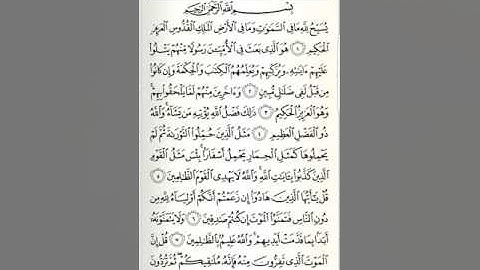 بِسْمِ اللَّهِ الرَّحْمَٰنِ الرَّحِيمِ
يُسَبِّحُ لِلَّهِ مَا فِي السَّمَاوَاتِ وَمَا فِي الْأَرْضِ الْمَلِكِ الْقُدُّوسِ الْعَزِيزِ
الْحَكِيمِ ١ هُوَ الَّذِي بَعَثَ فِي الْأُمِّيِّينَ رَسُولًا مِنْهُمْ يَتْلُوا
عَلَيْهِمْ آيَاتِهِ وَيُزَكِّيهِمْ وَيُعَلِّمُهُمُ الْكِتَابَ وَالْحِكْمَةَ وَإِنْ كَانُوا
مِنْ قَبْلُ لَفِي ضَلَالٍ مُبِينٍ ٢ وَآخَرِينَ مِنْهُمْ لَمَّا يَلْحَقُوا بِهِمْ
وَهُوَ الْعَزِيزُ الْحَكِيمُ ٣ ذَٰلِكَ فَضْلُ اللَّهِ يُؤْتِيهِ مَنْ يَشَاءُ وَاللَّهُ
ذُو الْفَضْلِ الْعَظِيمِ ٤ مَثَلُ الَّذِينَ حُمِّلُوا التَّوْرَاةَ ثُمَّ لَمْ
يَحْمِلُوهَا كَمَثَلِ الْحِمَارِ يَحْمِلُ أَسْفَارًا بِئْسَ مَثَلُ الْقَوْمِ
الَّذِينَ كَذَّبُوا بِآيَاتِ اللَّهِ وَاللَّهُ لَا يَهْدِي الْقَوْمَ الظَّالِمِينَ ٥
قُلْ يَا أَيُّهَا الَّذِينَ هَادُوا إِنْ زَعَمْتُمْ أَنَّكُمْ أَوْلِيَاءُ لِلَّهِ مِنْ
دُونِ النَّاسِ فَتَمَنَّوُا الْمَوْتَ إِنْ كُنْتُمْ صَادِقِينَ ٦ وَلَا يَتَمَنَّوْنَهُ
أَبَدًا بِمَا قَدَّمَتْ أَيْدِيهِمْ وَاللَّهُ عَلِيمٌ بِالظَّالِمِينَ ٧ قُلْ إِنَّ
الْمَوْتَ الَّذِي تَفِرُّونَ مِنْهُ فَإِنَّهُ مُلَاقِيكُمْ ثُمَّ تُرَدُّونَ